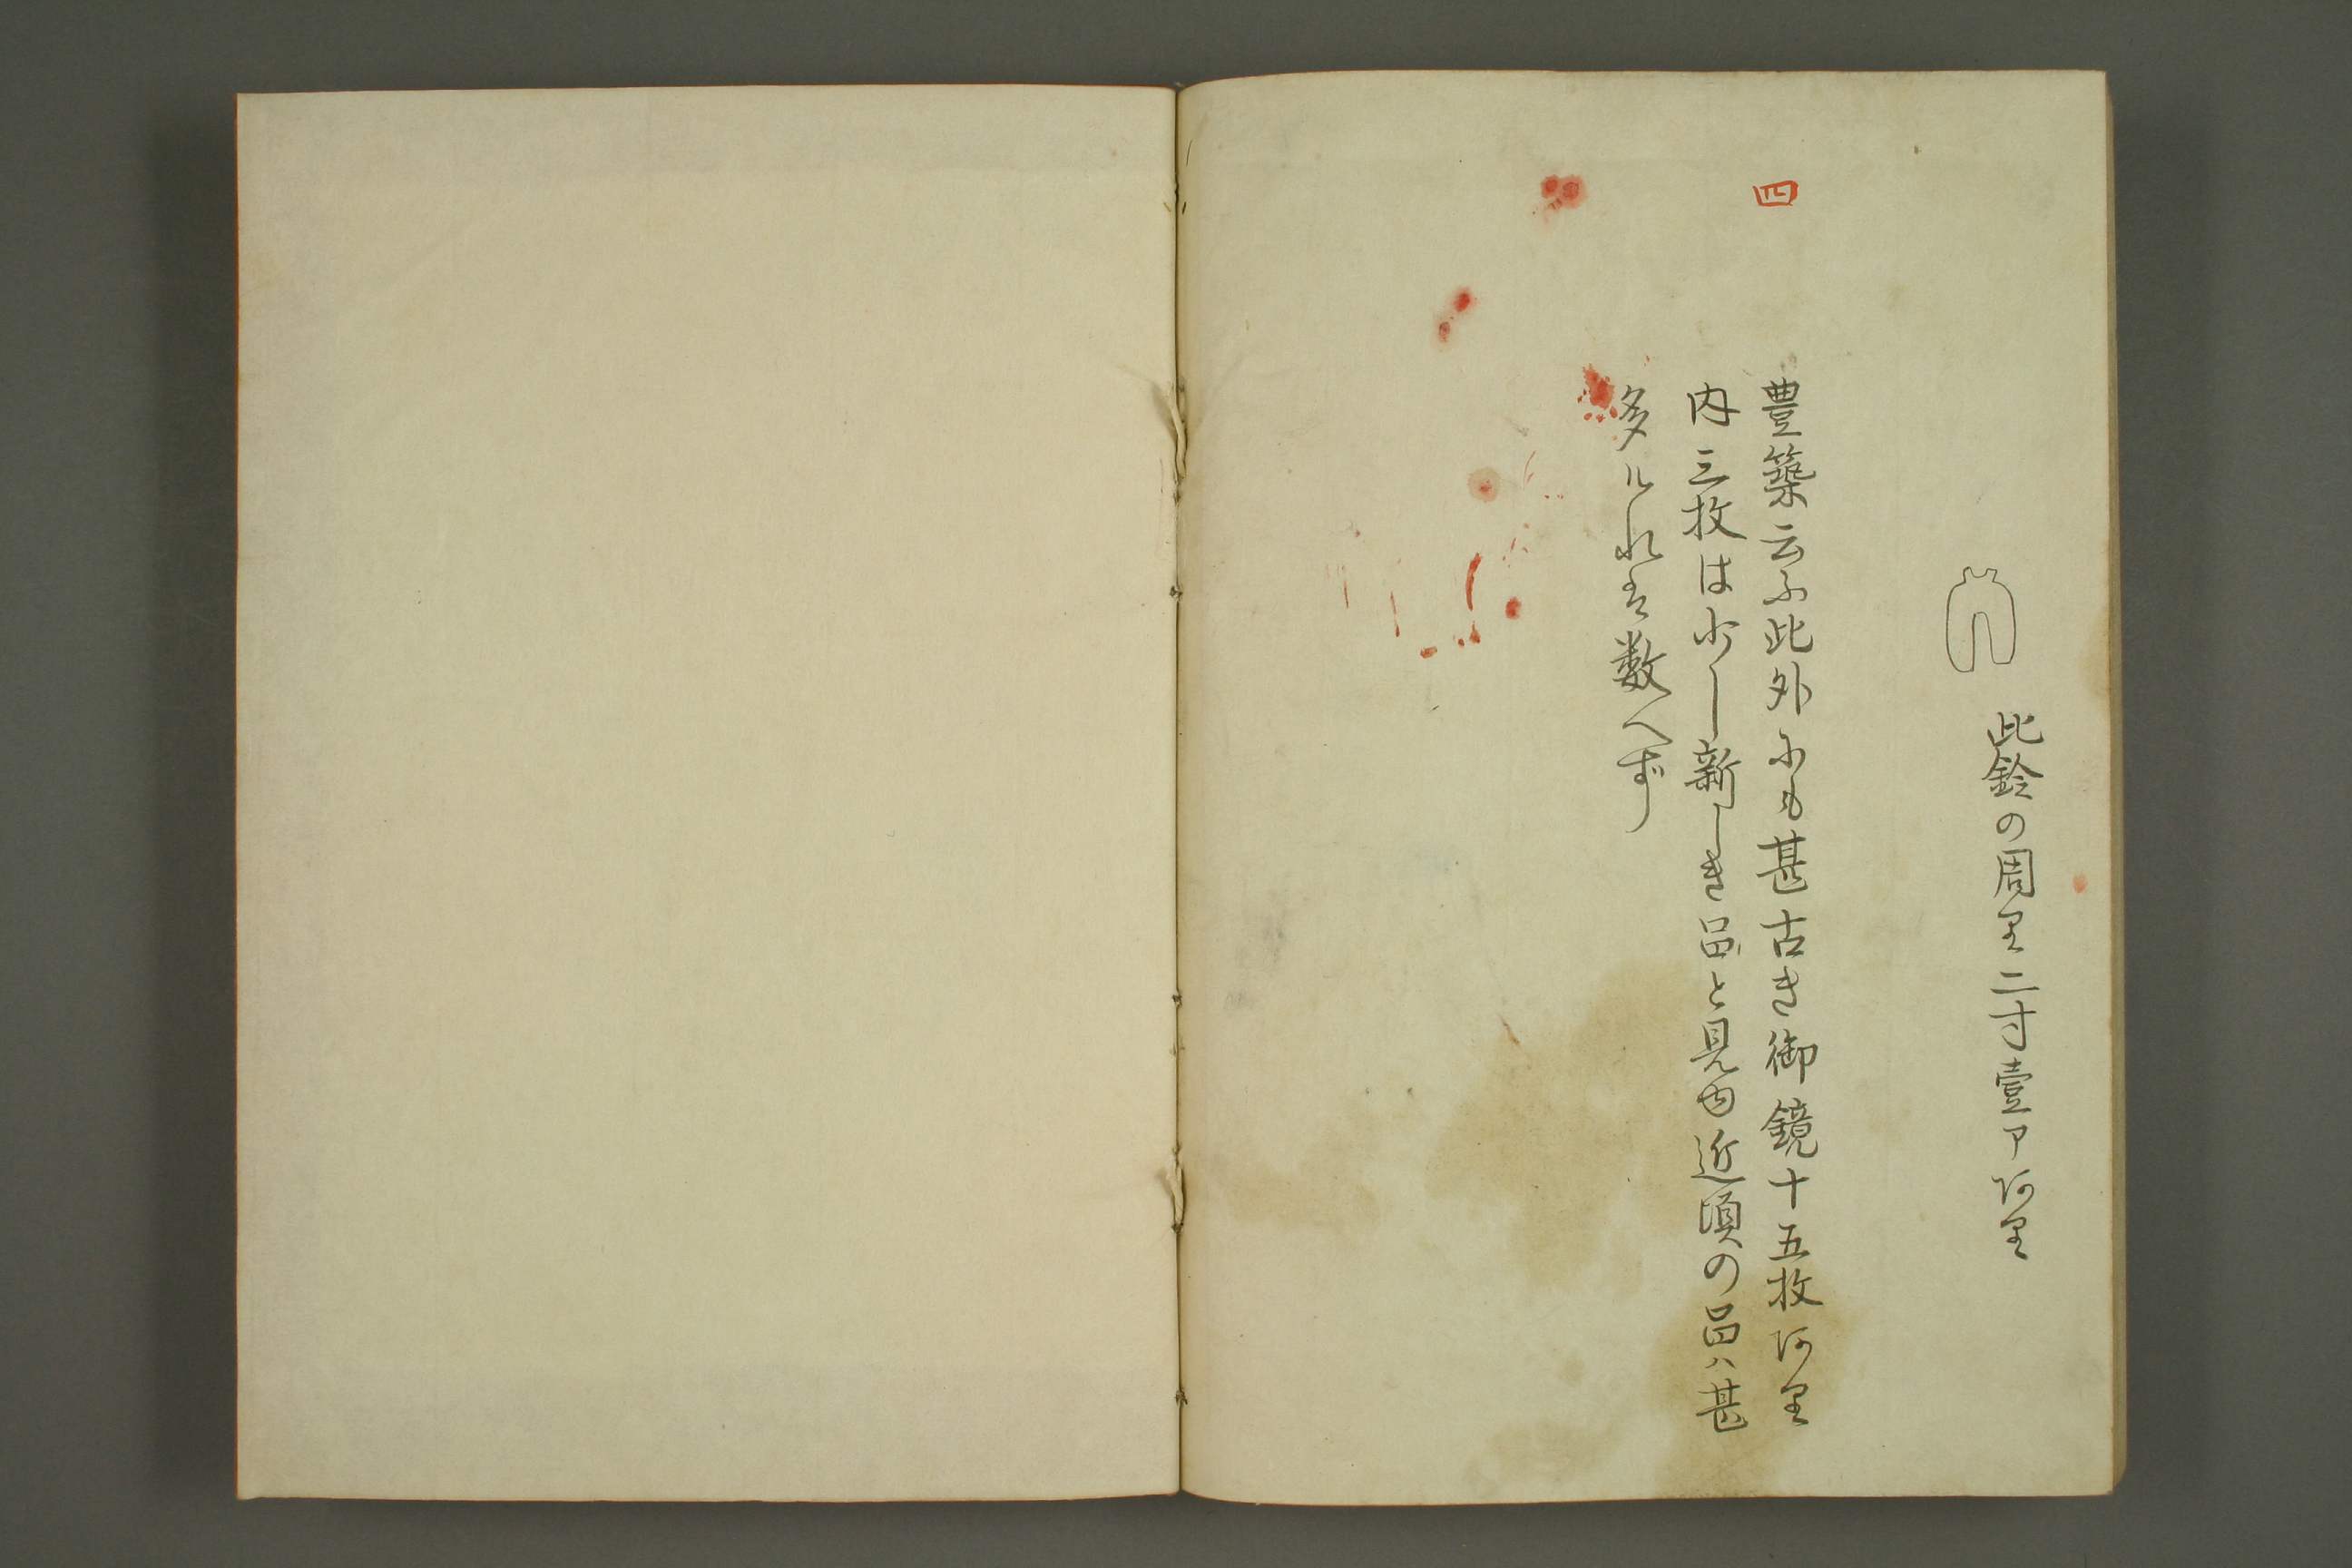 此鈴の周里二寸壹ア阿里
四
豊築云ふ此外尓も甚古き御鏡十五枚阿里
内三枚は少し新しき品と見ゆ近頃の品ハ甚
多ルれ者数へず